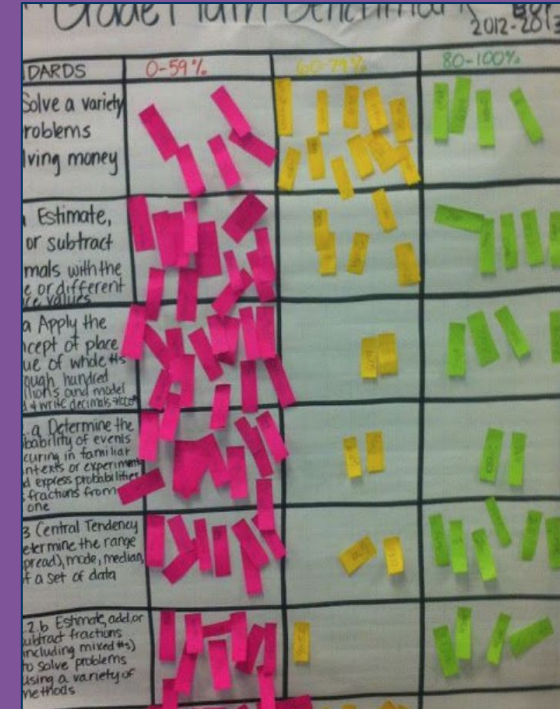 Grade Math Benchmark
2012-2013
DARDS
0-59%
60-79%
80-100%
Solve a variety
roblems
lving money
Estimate,
or subtract
mals with the
e or different
ce values
a Apply the
cept of place
ue of whole #s
ough hundred
lions and model
& write decimals
.a Determine the
bability of events
curing in familiar
ntexts or experiments
d express probabilities
fractions from
one
3 Central Tendency
etermine the range
pread), mode, median,
f a set of data
.2.b Estimate, add, or
ubtract fractions
including mixed #s)
to solve problems
using a variety of
methods